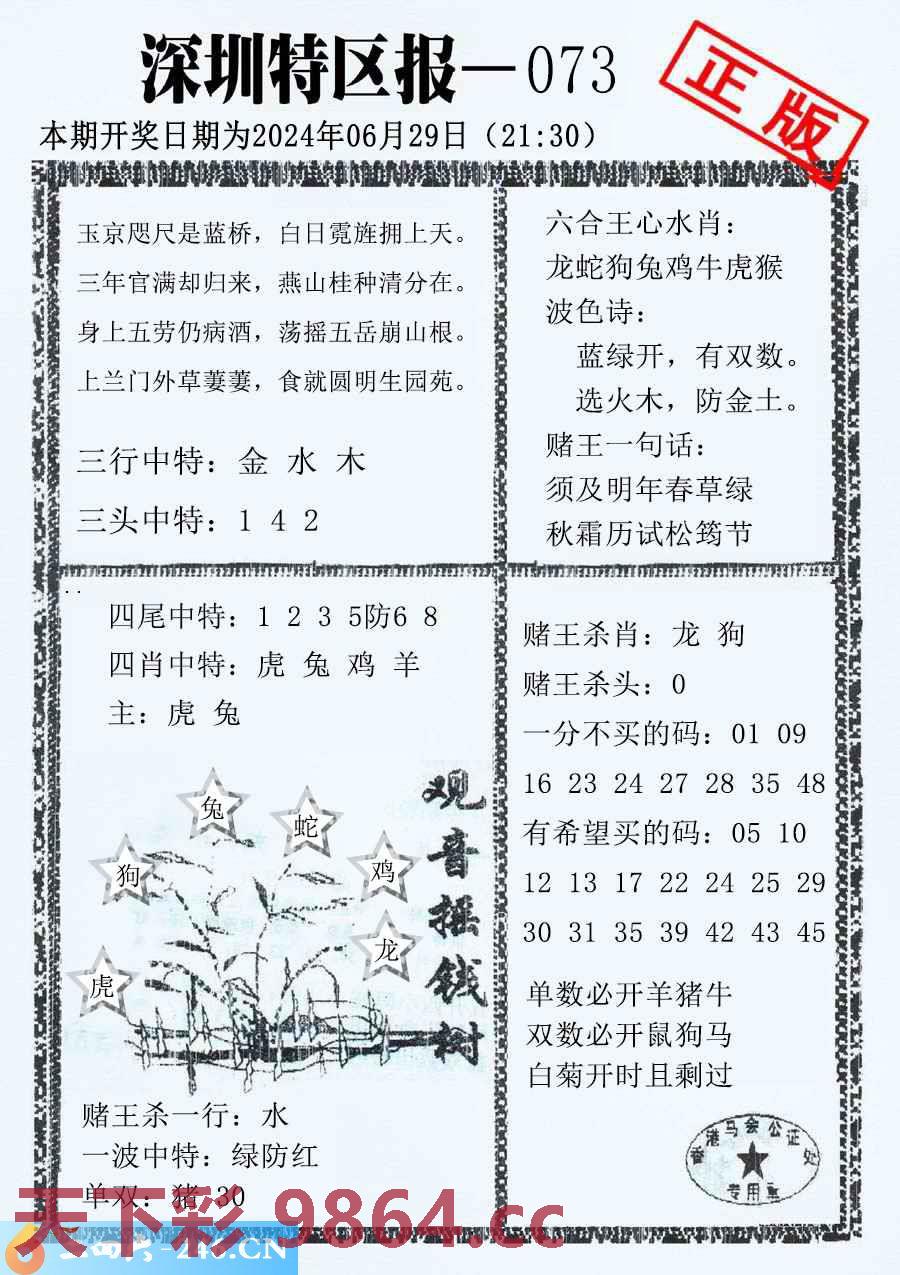 深圳特区报—073
正版
本期开奖日期为2024年06月29日（21:30）
玉京咫尺是蓝桥，白日霓旌拥上天。
三年官满却归来，燕山桂种清分在。
身上五劳仍病酒，荡摇五岳崩山根。
上兰门外草萋萋，食就圆明生园苑。
三行中特：金 水 木
三头中特：1 4 2
六合王心水肖：
龙蛇狗兔鸡牛虎猴
波色诗：
蓝绿开，有双数。
选火木，防金土。
赌王一句话：
须及明年春草绿
秋霜历试松筠节
四尾中特：1 2 3 5防6 8
四肖中特：虎 兔 鸡 羊
主：虎 兔
兔
蛇
狗
鸡
龙
虎
观音摇钱树
赌王杀一行：水
一波中特：绿防红
单双：猪 30
赌王杀肖：龙 狗
赌王杀头：0
一分不买的码：01 09
16 23 24 27 28 35 48
有希望买的码：05 10
12 13 17 22 24 25 29
30 31 35 39 42 43 45
单数必开羊猪牛
双数必开鼠狗马
白菊开时且剩过
香港马会公证处
专用章
天下彩 9864.cc
-246.CN